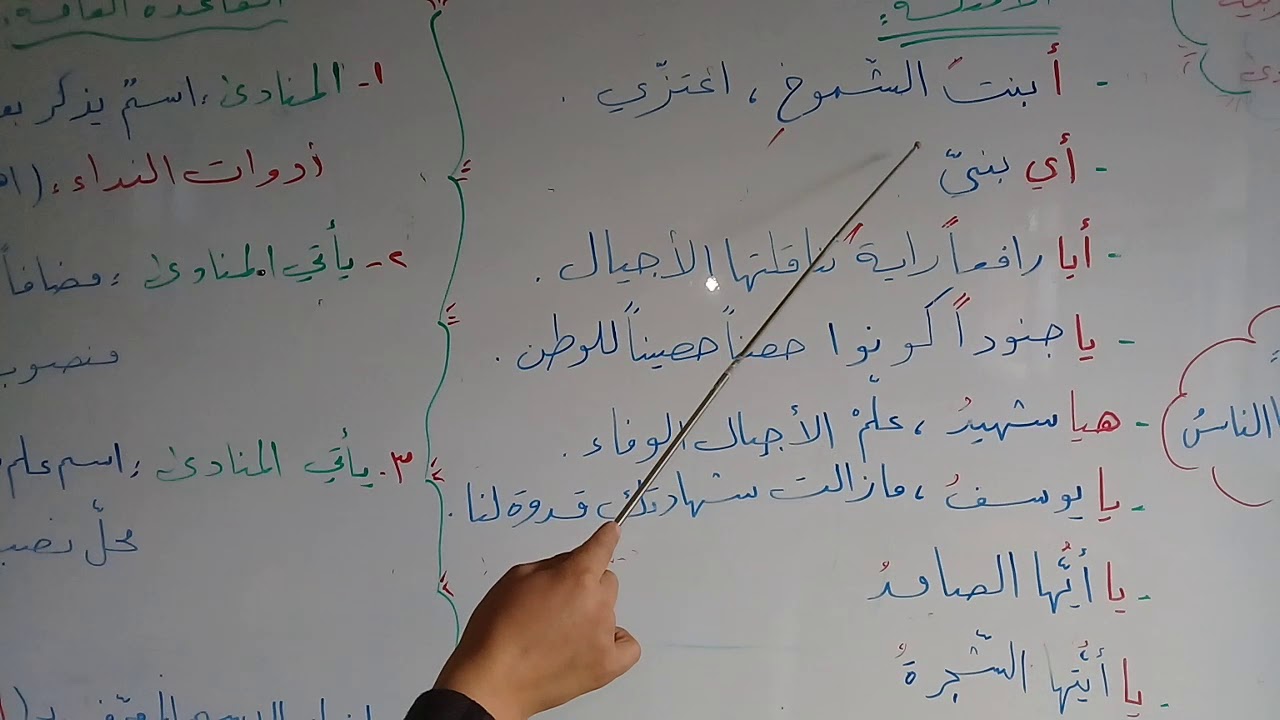 الأمثلة:
- أبنتَ الشّموخِ، اعتزّي.
- أي بنيّ
- أيا رافعاً رايةً تناقلتها الأجيال.
- يا جنوداً كونوا حصناً حصيناً للوطن.
- هيا شهيدُ، علّمْ الأجيال الوفاء.
- يا يوسفُ، مازالت شهادتك قدوة لنا.
- يا أيُّها الصامدُ
- يا أيَّتُها الشّجرةُ
القاعدة العامة:
١- المنادى: اسمٌ يذكر
أدوات النداء: (
٢- يأتي المنادى: مضافاً
٣- يأتي المنادى: اسم علم
محلّ نصب
الناسُ